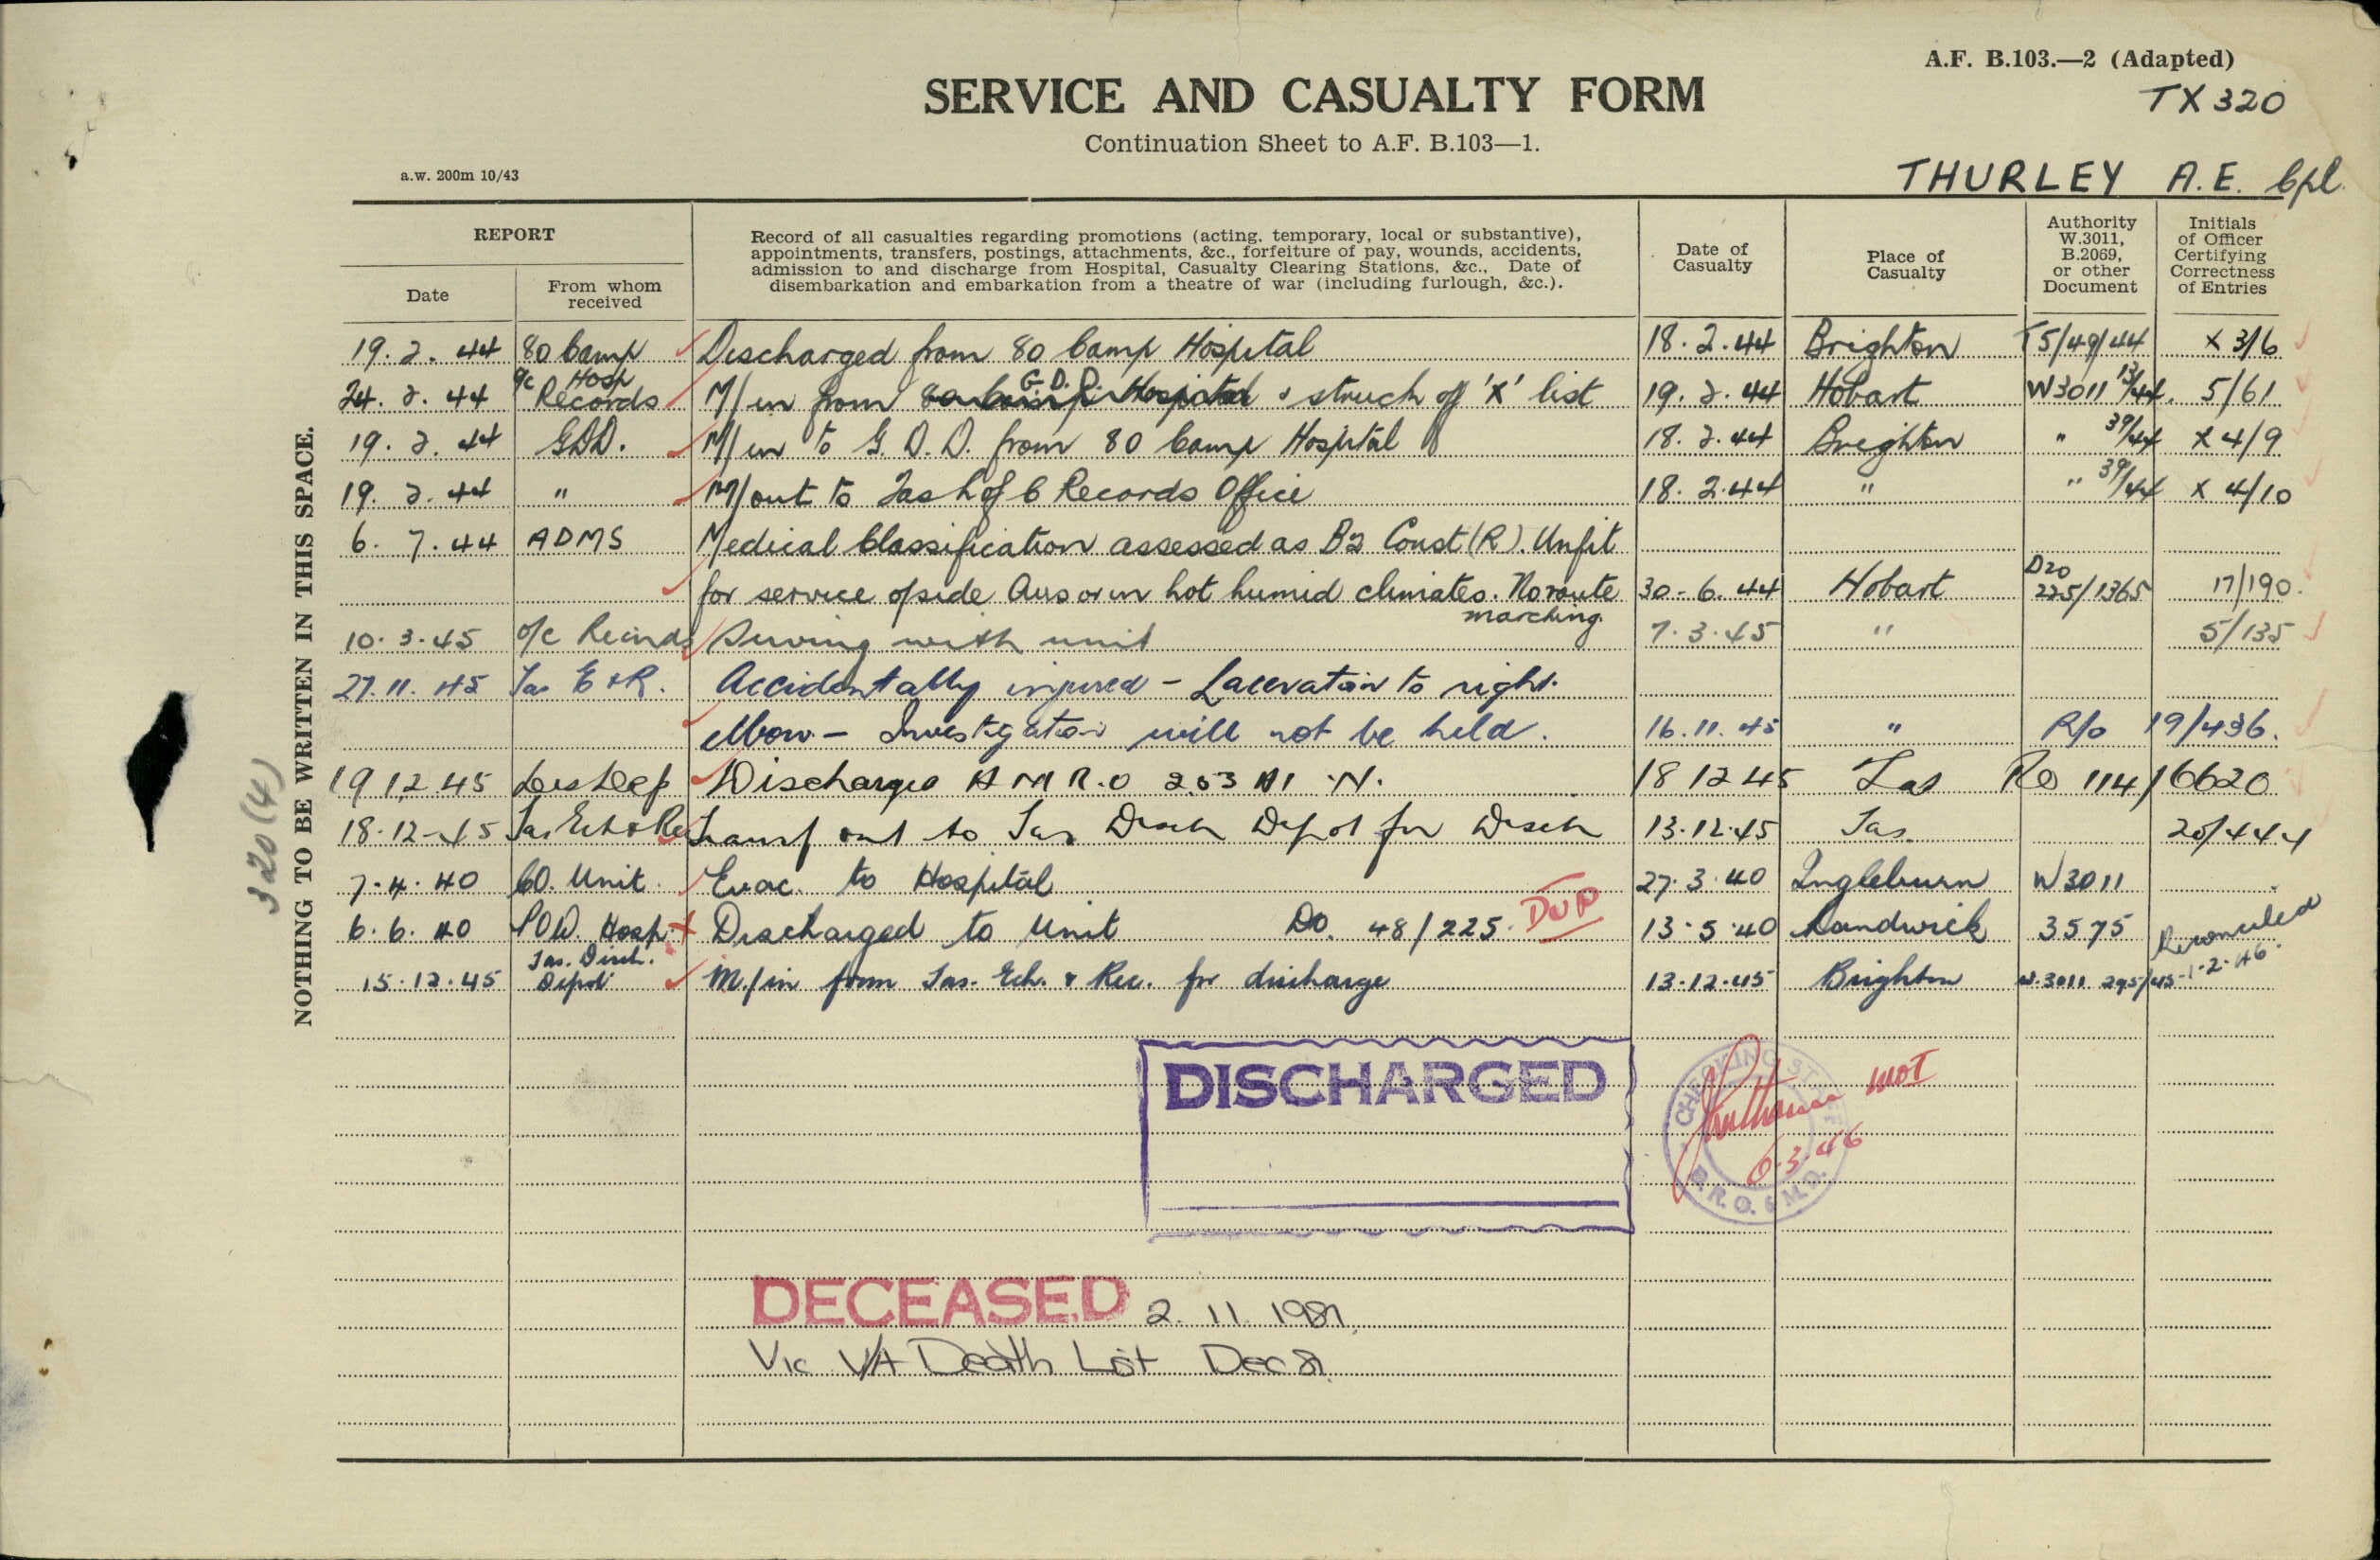 A.F. B.103.—2 (Adapted)
TX 320
SERVICE AND CASUALTY FORM
Continuation Sheet to A.F. B.103—1.
THURLEY A.E. Cpl.
a.w. 200m 10/43
REPORT
Date
From whom received
Record of all casualties regarding promotions (acting, temporary, local or substantive),
appointments, transfers, postings, attachments, &c., forfeiture of pay, wounds, accidents,
admission to and discharge from Hospital, Casualty Clearing Stations, &c., Date of
disembarkation and embarkation from a theatre of war (including furlough, &c.).
Date of Casualty
Place of Casualty
Authority W.3011, B.2069, or other Document
Initials of Officer Certifying Correctness of Entries
19. 2. 44 80 Camp Hosp Discharged from 80 Camp Hospital 18. 2. 44 Brighton T5/49/44 X 3/6
24. 2. 44 o/c Records M/in from G.D.D. & struck off 'X' list 19. 2. 44 Hobart W3011 13/44. 5/61
19. 2. 44 GDD. M/in to G.D.D. from 80 Camp Hospital 18. 2. 44 Brighton " 39/44 X 4/9
19. 2. 44 " M/out to Tas L of C Records Office 18. 2. 44 " " 39/44 X 4/10
6. 7. 44 ADMS Medical Classification assessed as B2 Const (R). Unfit
for service o/side Aus or in hot humid climates. No route 30-6. 44 Hobart D20 225/1365 17/190.
marching.
10. 3. 45 o/c Records Serving with unit 7. 3. 45 " 5/135
27. 11. 45 Tas E & R. Accidentally injured – Laceration to right
elbow – Investigation will not be held. 16. 11. 45 " R/o 19/436.
19 12 45 Discharged A M R.O 253 N. 18 12 45 Tas Ro 114/6620
18-12-45 Tas Ech & Rec Transf out to Tas Disch Depot for Disch 13.12.45 Tas. 20/444
7. 4. 40 CO. Unit. Evac. to Hospital 27. 3. 40 Ingleburn W3011
6. 6. 40 POW. Hosp. Discharged to Unit Do. 48/225. DUP 13. 5. 40 Randwick 3575
Reconciled
1-2-46
15. 12. 45 Tas. Disch. Depot M/in from Tas. Ech. & Rec. for discharge 13.12.45 Brighton W.3011 295/45
NOTHING TO BE WRITTEN IN THIS SPACE.
320 (4)
DISCHARGED
CHECKING
6.3.46
DECEASED 2. 11. 1981.
Vic VA Death List Dec 81.